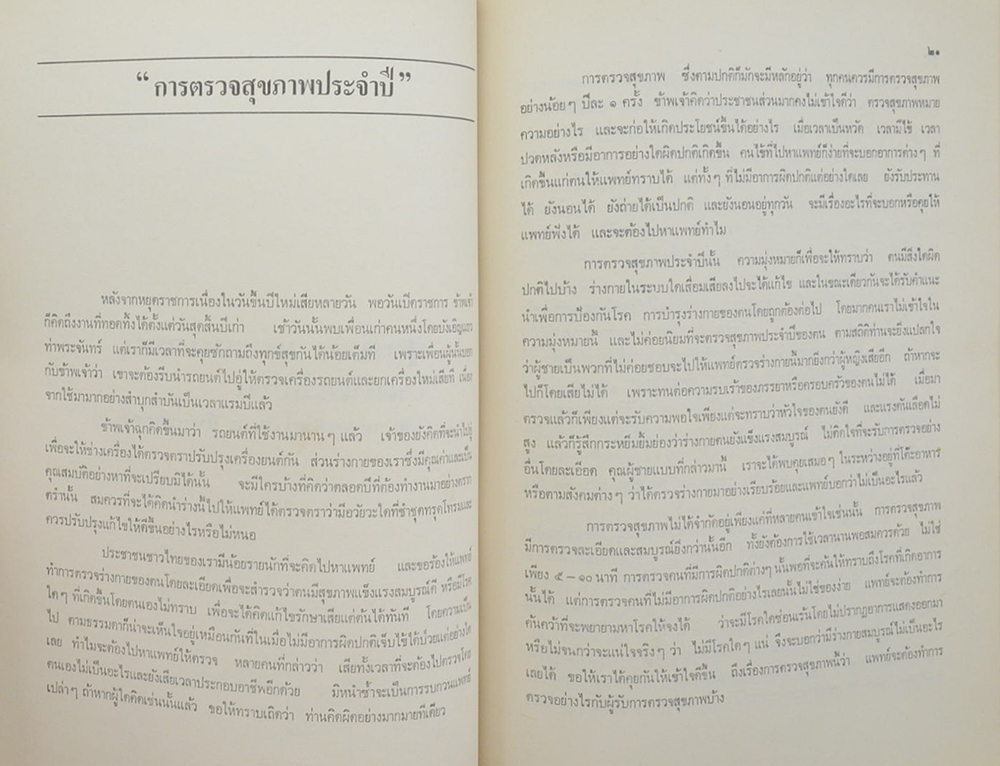 “ การตรวจสุขภาพประจำปี ”
หลังจากหยุดราชการเนื่องในวันขึ้นปีใหม่เสียหลายวัน พอวันเปิดราชการ ข้าพเจ้า
ก็คิดถึงงานที่ทอดทิ้งไว้ตั้งแต่วันสุดสิ้นปีเก่า เช้าวันนั้นพบเพื่อนเก่าคนหนึ่งโดยบังเอิญแถว
ท่าพระจันทร์ แต่เราก็มีเวลาที่จะคุยซักถามถึงทุกข์สุขกันได้น้อยเต็มที เพราะเพื่อนผู้นั้นบอก
กับข้าพเจ้าว่า เขาจะต้องรีบนำรถยนต์ไปอู่ให้ตรวจเครื่องรถยนต์และยกเครื่องใหม่เสียที เนื่อง
จากใช้มามากอย่างสำบุกสำบันเป็นเวลาแรมปีแล้ว
ข้าพเจ้าฉุกคิดขึ้นมาว่า รถยนต์ที่ใช้งานมานานๆ แล้ว เจ้าของยังคิดที่จะนำไปอู่
เพื่อจะให้ช่างเครื่องได้ตรวจตราปรับปรุงเครื่องยนต์กัน ส่วนร่างกายของเราซึ่งมีคุณค่าและเป็น
คุณสมบัติอย่างหาที่จะเปรียบมิได้นั้น จะมีใครบ้างที่คิดว่าตลอดปีที่ต้องทำงานมาอย่างตราก
ตรำนั้น สมควรที่จะได้คิดนำร่างนี้ไปให้แพทย์ได้ตรวจตราว่ามีอวัยวะใดที่ชำรุดทรุดโทรมและ
ควรปรับปรุงแก้ไขให้ดีขึ้นอย่างไรหรือไม่หนอ
ประชาชนชาวไทยของเรามีน้อยรายนักที่จะคิดไปหาแพทย์ และขอร้องให้แพทย์
ทำการตรวจร่างกายของตนโดยละเอียดเพื่อจะสำรวจว่าตนมีสุขภาพแข็งแรงสมบูรณ์ดี หรือมีโรค
ใดๆ ที่เกิดขึ้นโดยตนเองไม่ทราบ เพื่อจะได้คิดแก้ไขรักษาเสียแต่ต้นได้ทันที โดยความเป็น
ไป ตามธรรมดาก็น่าจะเห็นใจอยู่เหมือนกันที่ในเมื่อไม่มีอาการผิดปกติเจ็บไข้ได้ป่วยแต่อย่างใด
เลย ทำไมจะต้องไปหาแพทย์ให้ตรวจ หลายคนที่กล่าวว่า เสียทั้งเวลาที่จะต้องไปตรวจโดย
ตนเองไม่เป็นอะไรและยังเสียเวลาประกอบอาชีพอีกด้วย มิหนำซ้ำจะเป็นการรบกวนแพทย์
เปล่าๆ ถ้าหากผู้ใดคิดเช่นนั้นแล้ว ขอให้ทราบเถิดว่า ท่านคิดผิดอย่างมากมายทีเดียว
๒๑
การตรวจสุขภาพ ซึ่งตามปกติก็มักจะมีหลักอยู่ว่า ทุกคนควรมีการตรวจสุขภาพ
อย่างน้อยๆ ปีละ ๑ ครั้ง ข้าพเจ้าคิดว่าประชาชนส่วนมากคงไม่เข้าใจดีว่า ตรวจสุขภาพหมาย
ความอย่างไร และจะก่อให้เกิดประโยชน์ขึ้นได้อย่างไร เมื่อเวลาเป็นหวัด เวลามีไข้ เวลา
ปวดหลังหรือมีอาการอย่างใดผิดปกติเกิดขึ้น คนไข้ที่ไปหาแพทย์ก็ง่ายที่จะบอกอาการต่างๆ ที่
เกิดขึ้นแก่ตนให้แพทย์ทราบได้ แต่ทั้งๆ ที่ไม่มีอาการผิดปกติแต่อย่างใดเลย ยังรับประทาน
ได้ ยังนอนได้ ยังถ่ายได้เป็นปกติ และยังนอนอยู่ทุกวัน จะมีเรื่องอะไรที่จะบอกหรือคุยให้
แพทย์ฟังได้ และจะต้องไปหาแพทย์ทำไม
การตรวจสุขภาพประจำปีนั้น ความมุ่งหมายก็เพื่อจะให้ทราบว่า ตนมีสิ่งใดผิด
ปกติไปบ้าง ร่างกายในระบบใดเสื่อมเสียลงไปจะได้แก้ไข และในขณะเดียวกันจะได้รับคำแนะ
นำเพื่อการป้องกันโรค การบำรุงร่างกายของตนโดยถูกต้องต่อไป โดยมากคนเราไม่เข้าใจใน
ความมุ่งหมายนี้ และไม่ค่อยนิยมที่จะตรวจสุขภาพประจำปีของตน ตามสถิติท่านจะยิ่งแปลกใจ
ว่าผู้ชายเป็นพวกที่ไม่ค่อยชอบจะไปให้แพทย์ตรวจร่างกายนี้มากยิ่งกว่าผู้หญิงเสียอีก ถ้าหากจะ
ไปก็โดยเสียไม่ได้ เพราะทนต่อความรบเร้าของภรรยาหรือครอบครัวของตนไม่ได้ เมื่อมา
ตรวจแล้วก็เพียงแต่จะรับความพอใจเพียงแต่จะทราบว่าหัวใจของตนยังดี และแรงดันเลือดไม่
สูง แล้วก็รู้สึกกระหยิ่มยิ้มย่องว่าร่างกายตนยังแข็งแรงสมบูรณ์ ไม่คิดใจที่จะรับการตรวจอย่าง
อื่นโดยละเอียด คุณผู้ชายแบบที่กล่าวมานี้ เราจะได้พบคุยเสมอๆ ในระหว่างอยู่ที่โต๊ะอาหาร
หรือตามสังคมต่างๆ ว่าได้ตรวจร่างกายมาอย่างเรียบร้อยและแพทย์บอกว่าไม่เป็นอะไรแล้ว
การตรวจสุขภาพไม่ได้จำกัดอยู่เพียงแค่ที่หลายคนเข้าใจเช่นนั้น การตรวจสุขภาพ
มีการตรวจละเอียดและสมบูรณ์ยิ่งกว่านั้นอีก ทั้งยังต้องการใช้เวลานานพอสมควรด้วย ไม่ใช่
เพียง ๕ – ๑๐ นาที การตรวจคนที่มีการผิดปกติต่างๆ นั้นพอที่จะค้นให้ทราบถึงโรคที่เกิดอาการ
นั้นได้ แต่การตรวจคนที่ไม่มีอาการผิดปกติอย่างไรเลยนั้นไม่ใช่ของง่าย แพทย์จะต้องทำการ
ค้นคว้าที่จะพยายามหาโรคให้จงได้ ว่าจะมีโรคใดซ่อนเร้นโดยไม่ปรากฏอาการแสดงออกมา
หรือไม่จนกว่าจะแน่ใจจริงๆ ว่า ไม่มีโรคใดๆ แน่ จึงจะบอกว่ามีร่างกายสมบูรณ์ไม่เป็นอะไร
เลยได้ ขอให้เราได้คุยกันให้เข้าใจดีขึ้น ถึงเรื่องการตรวจสุขภาพนี้ว่า แพทย์จะต้องทำการ
ตรวจอย่างไรกับผู้รับการตรวจสุขภาพบ้าง